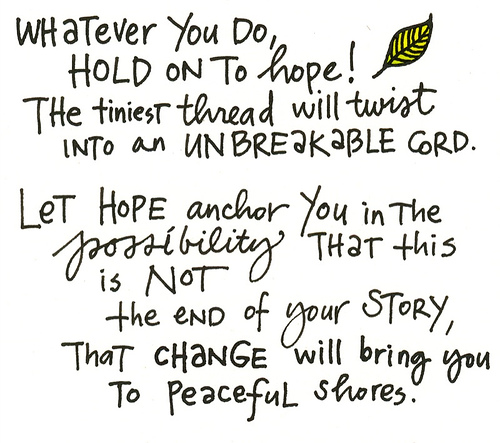 WHaTever You Do,
HOLD ON To hope!
THe tiniest thread will twist
INTo an UNBREaKaBLE CORD.
LeT HoPE anchor You in The
possibility THaT this
is NoT
the END of your SToRY,
THaT CHaNGE will bring you
To Peacefu​L shores.